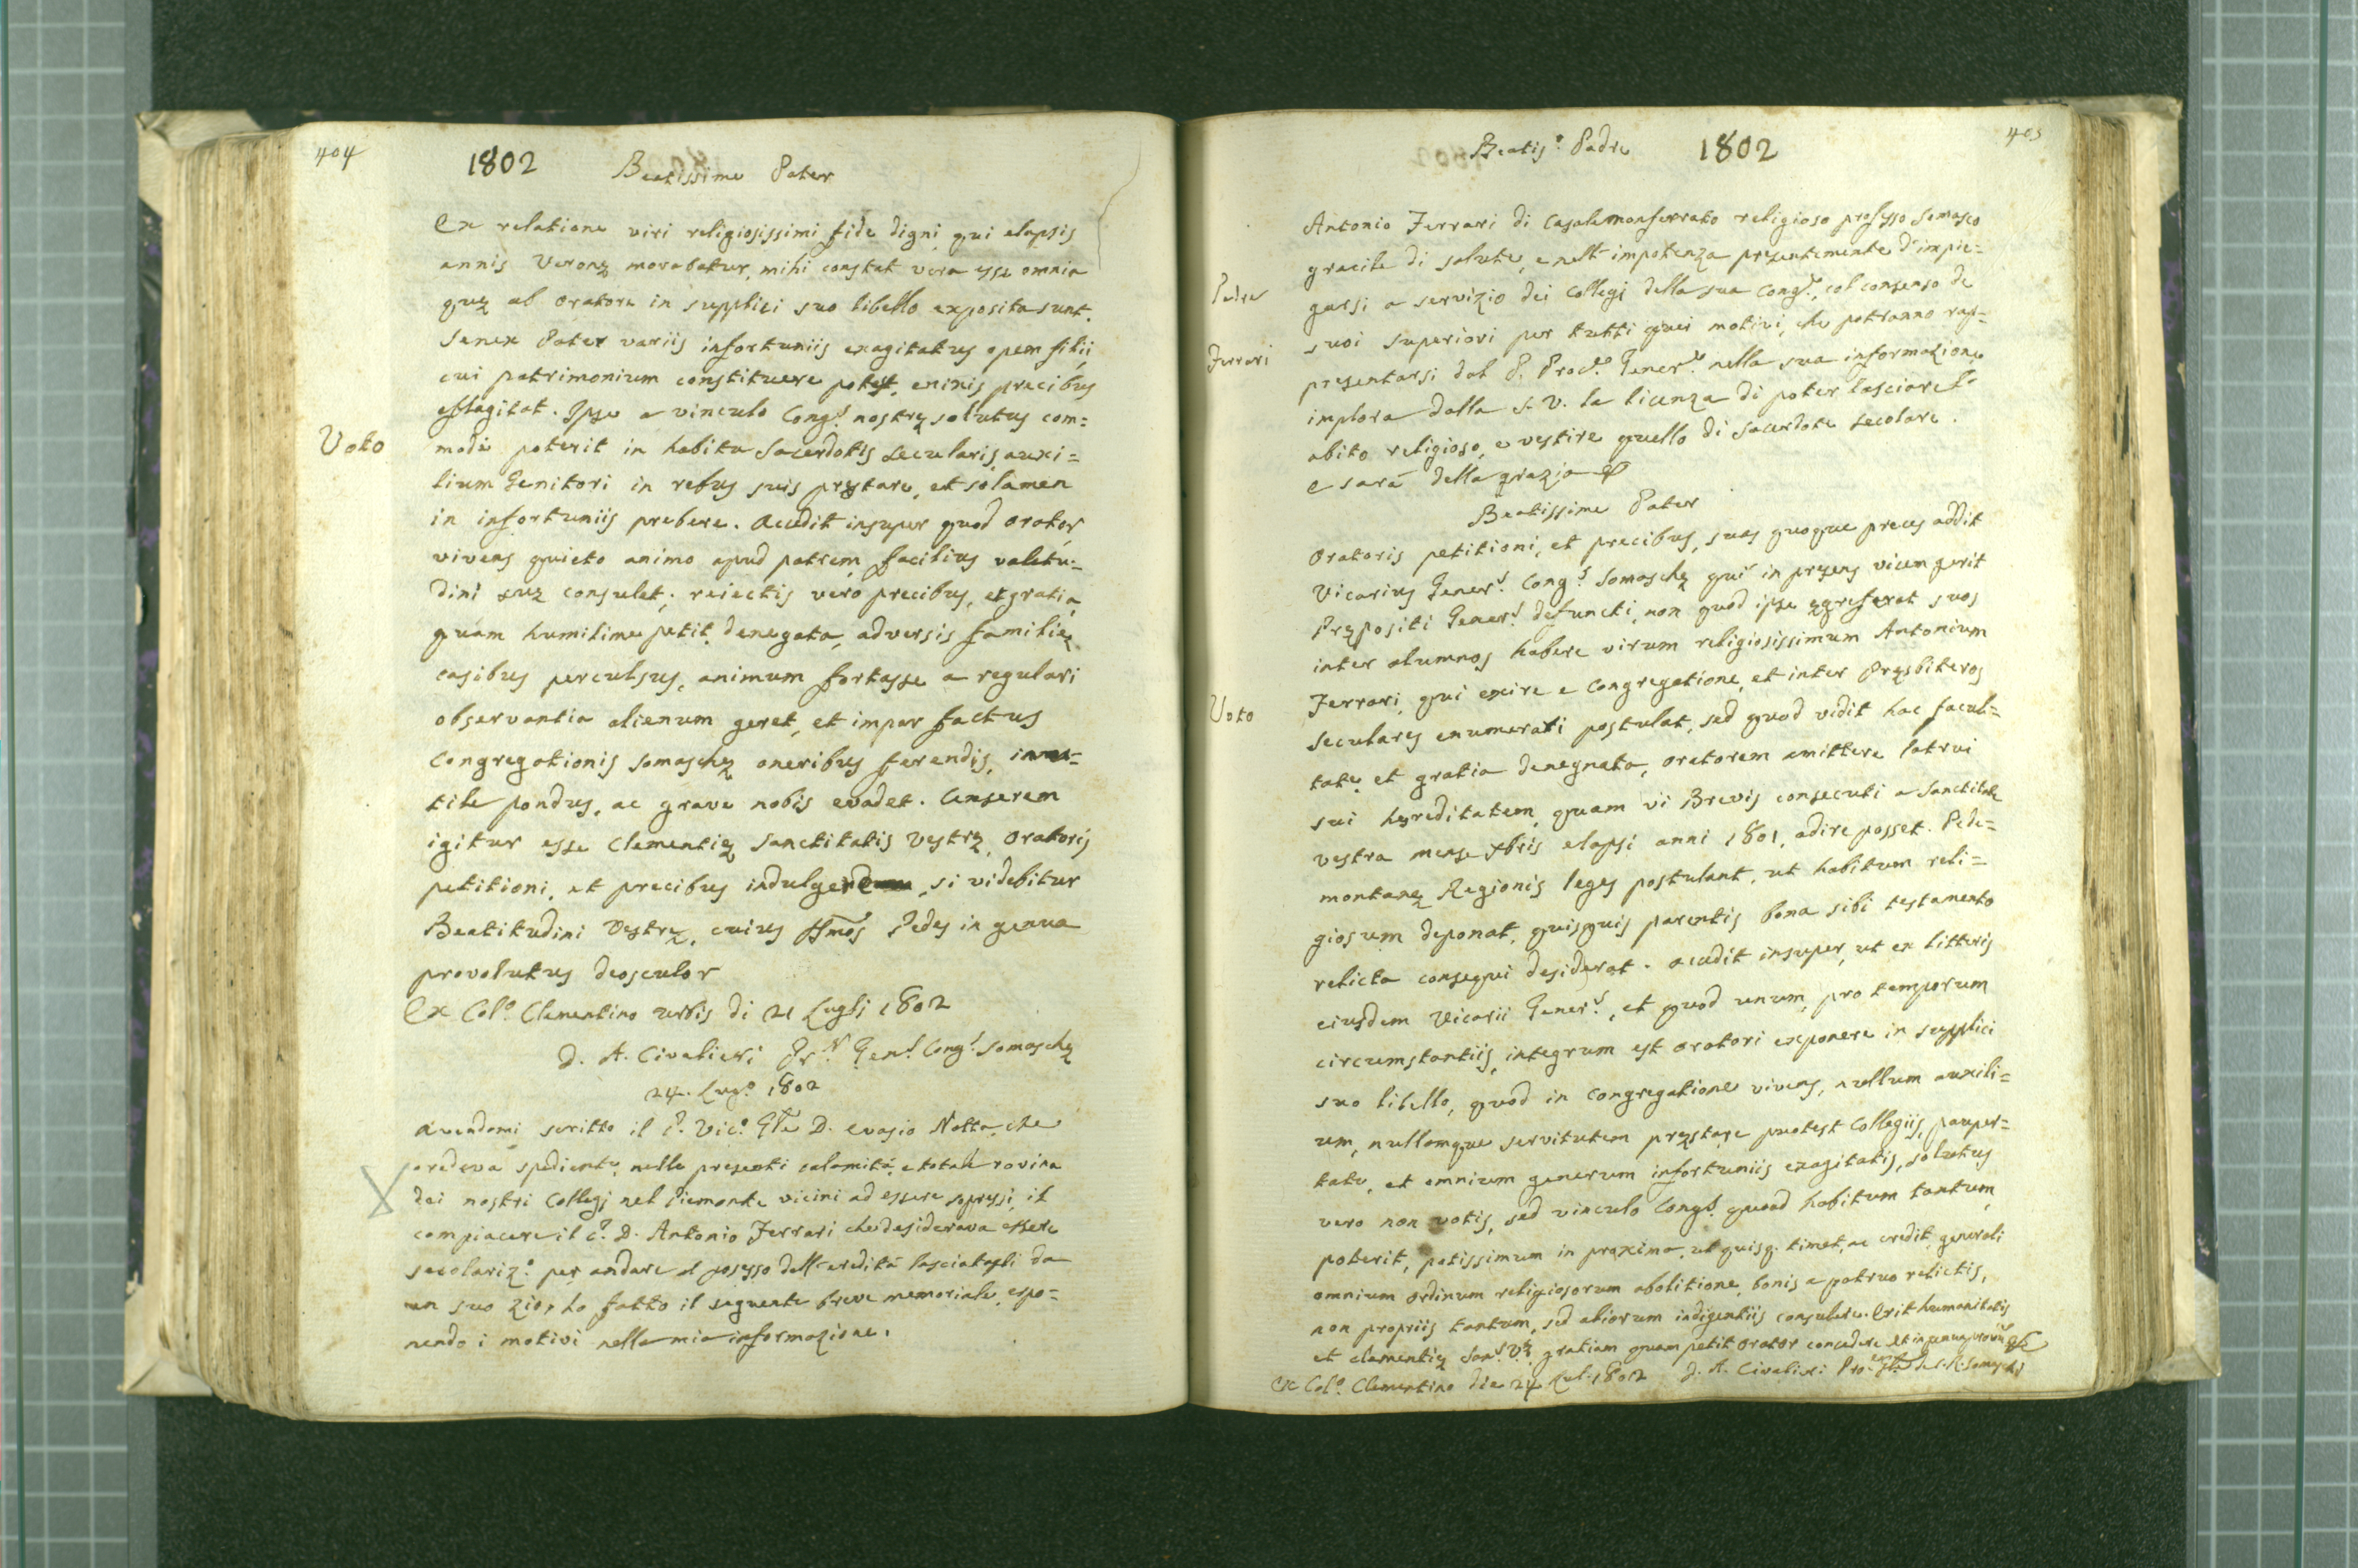 404
1802 Beatissime Pater
Ex relatione viri religiosissimi fide digni, qui elapsis
annis Veronę morabatur, mihi constat vera esse omnia
quę ab oratore in supplici suo libello exposita sunt.
Senex Pater variis infortuniis exagitatus opem filii,
cui patrimonium constituere potest, enixis precibus
efflagitat. Ipse a vinculo Congs. nostrę solutus com=
Voto
mode poterit in habitu Sacerdotis Secularis auxi=
lium Genitori in rebus suis pręstare, et solamen
in infortuniis prebere. Accedit insuper quod orator,
vivens quieto animo apud patrem, facilius valetu=
dini suę consulet; reiectis vero precibus, et gratia,
quam humilime petit, denegata, adversis familię
casibus perculsus, animum fortasse a regulari
observantia alienum geret, et impar factus
Congregationis Somaschę oneribus ferendis, inu=
tile pondus, ac grave nobis evadet. Censerem
igitur esse Clementię Sanctitatis Vestrę, oratoris
petitioni, et precibus indulgere, si videbitur
Beatitudini Vestrę, cuius SSmos Pedes in genua
provolutus deosculor
Ex Colo. Clementino Urbis di 21 Luglj 1802
D. A. Civalieri Pr. Genl. Congs. Somaschę
24. Lugo. 1802
Avendomi scritto il P. Vico. Gle D. Evasio Natta, che
credeva spediente, nelle presenti calamità, e totale rovina
dei nostri Collegj nel Piemonte vicini ad essere sopressi, il
compiacere il P. D. Antonio Ferrari che desiderava essere
secolarizo. per andare al posesso dell'eredità lasciatagli da
un suo zio, ho fatto il seguente breve memoriale, espo=
nendo i motivi nella mia informazione.
405
Beatiso. Padre 1802
Antonio Ferrari di Casalemonferrato religioso professo Somasco
gracile di salute, e nell' impotenza presentemente d'impie=
Padre
garsi a servizio dei Collegj della sua Conge., col consenso de
suoi superiori per tutti quei motivi, che potranno rap=
Ferrari
presentarsi dal P. Proco. Genere. nella sua informazione
implora dalla S. V. la licenza di poter lasciare l'
abito religioso, e vestire quello di Sacerdote Secolare.
e sarà della grazia &
Beatissime Pater
Oratoris petitioni, et precibus, suas quoque preces addit
Vicarius Geners. Congs. Somaschę qui in pręsens vicem gerit
Prępositi Geners. defuncti, non quod ipse ęgre ferat suos
inter alumnos habere virum religiosissimum Antonium
Ferrari, qui exire e Congregatione, et inter Pręsbiteros
Voto
seculares enumerari postulat, sed quod vidit hac facul=
tate, et gratia denegnata, oratorem amittere Patrui
sui hęreditatem, quam vi Brevis consecuti a Sanctitate
vestra mense Xbris elapsi anni 1801, adire posset. Pede=
montanę Regionis leges postulant, ut habitum reli=
giosum deponat, quisquis parentis bona sibi testamento
relicta consequi desiderat. Accedit insuper, ut ex litteris
eiusdem Vicarii Geners., et quod unum, pro temporum
circumstantiis, integrum est oratori exponere in supplici
suo libello, quod in Congregatione vivens, nullum auxili=
um, nullamque servitutem pręstare puotest Collegiis, pauper=
tate, et omnium generum infortuniis exagitatis, solutus
vero non votis, sed vinculo Congs. quoad habitum tantum,
poterit, potissimum in proxima, ut quisq. timet, ac credit, generali
omnium ordinum religiosorum abolitione, bonis a patruo relictis,
non propriis tantum, sed aliorum indigentiis consulere. Erit humanitatis
et clementię Sans. Vę. gratiam quam petit orator concedere et in genua
Ex Colo. Clementino die 24 Lul. 1802 D. A. Civalieri